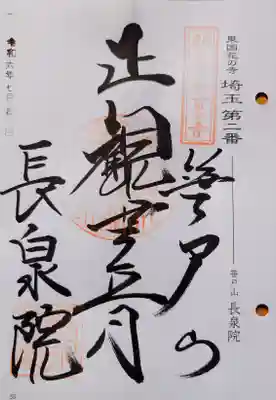 東国花の寺 埼玉第二番
笹戸山 長泉院
笹戸山
正観世音
長泉院
令和六年七月 日